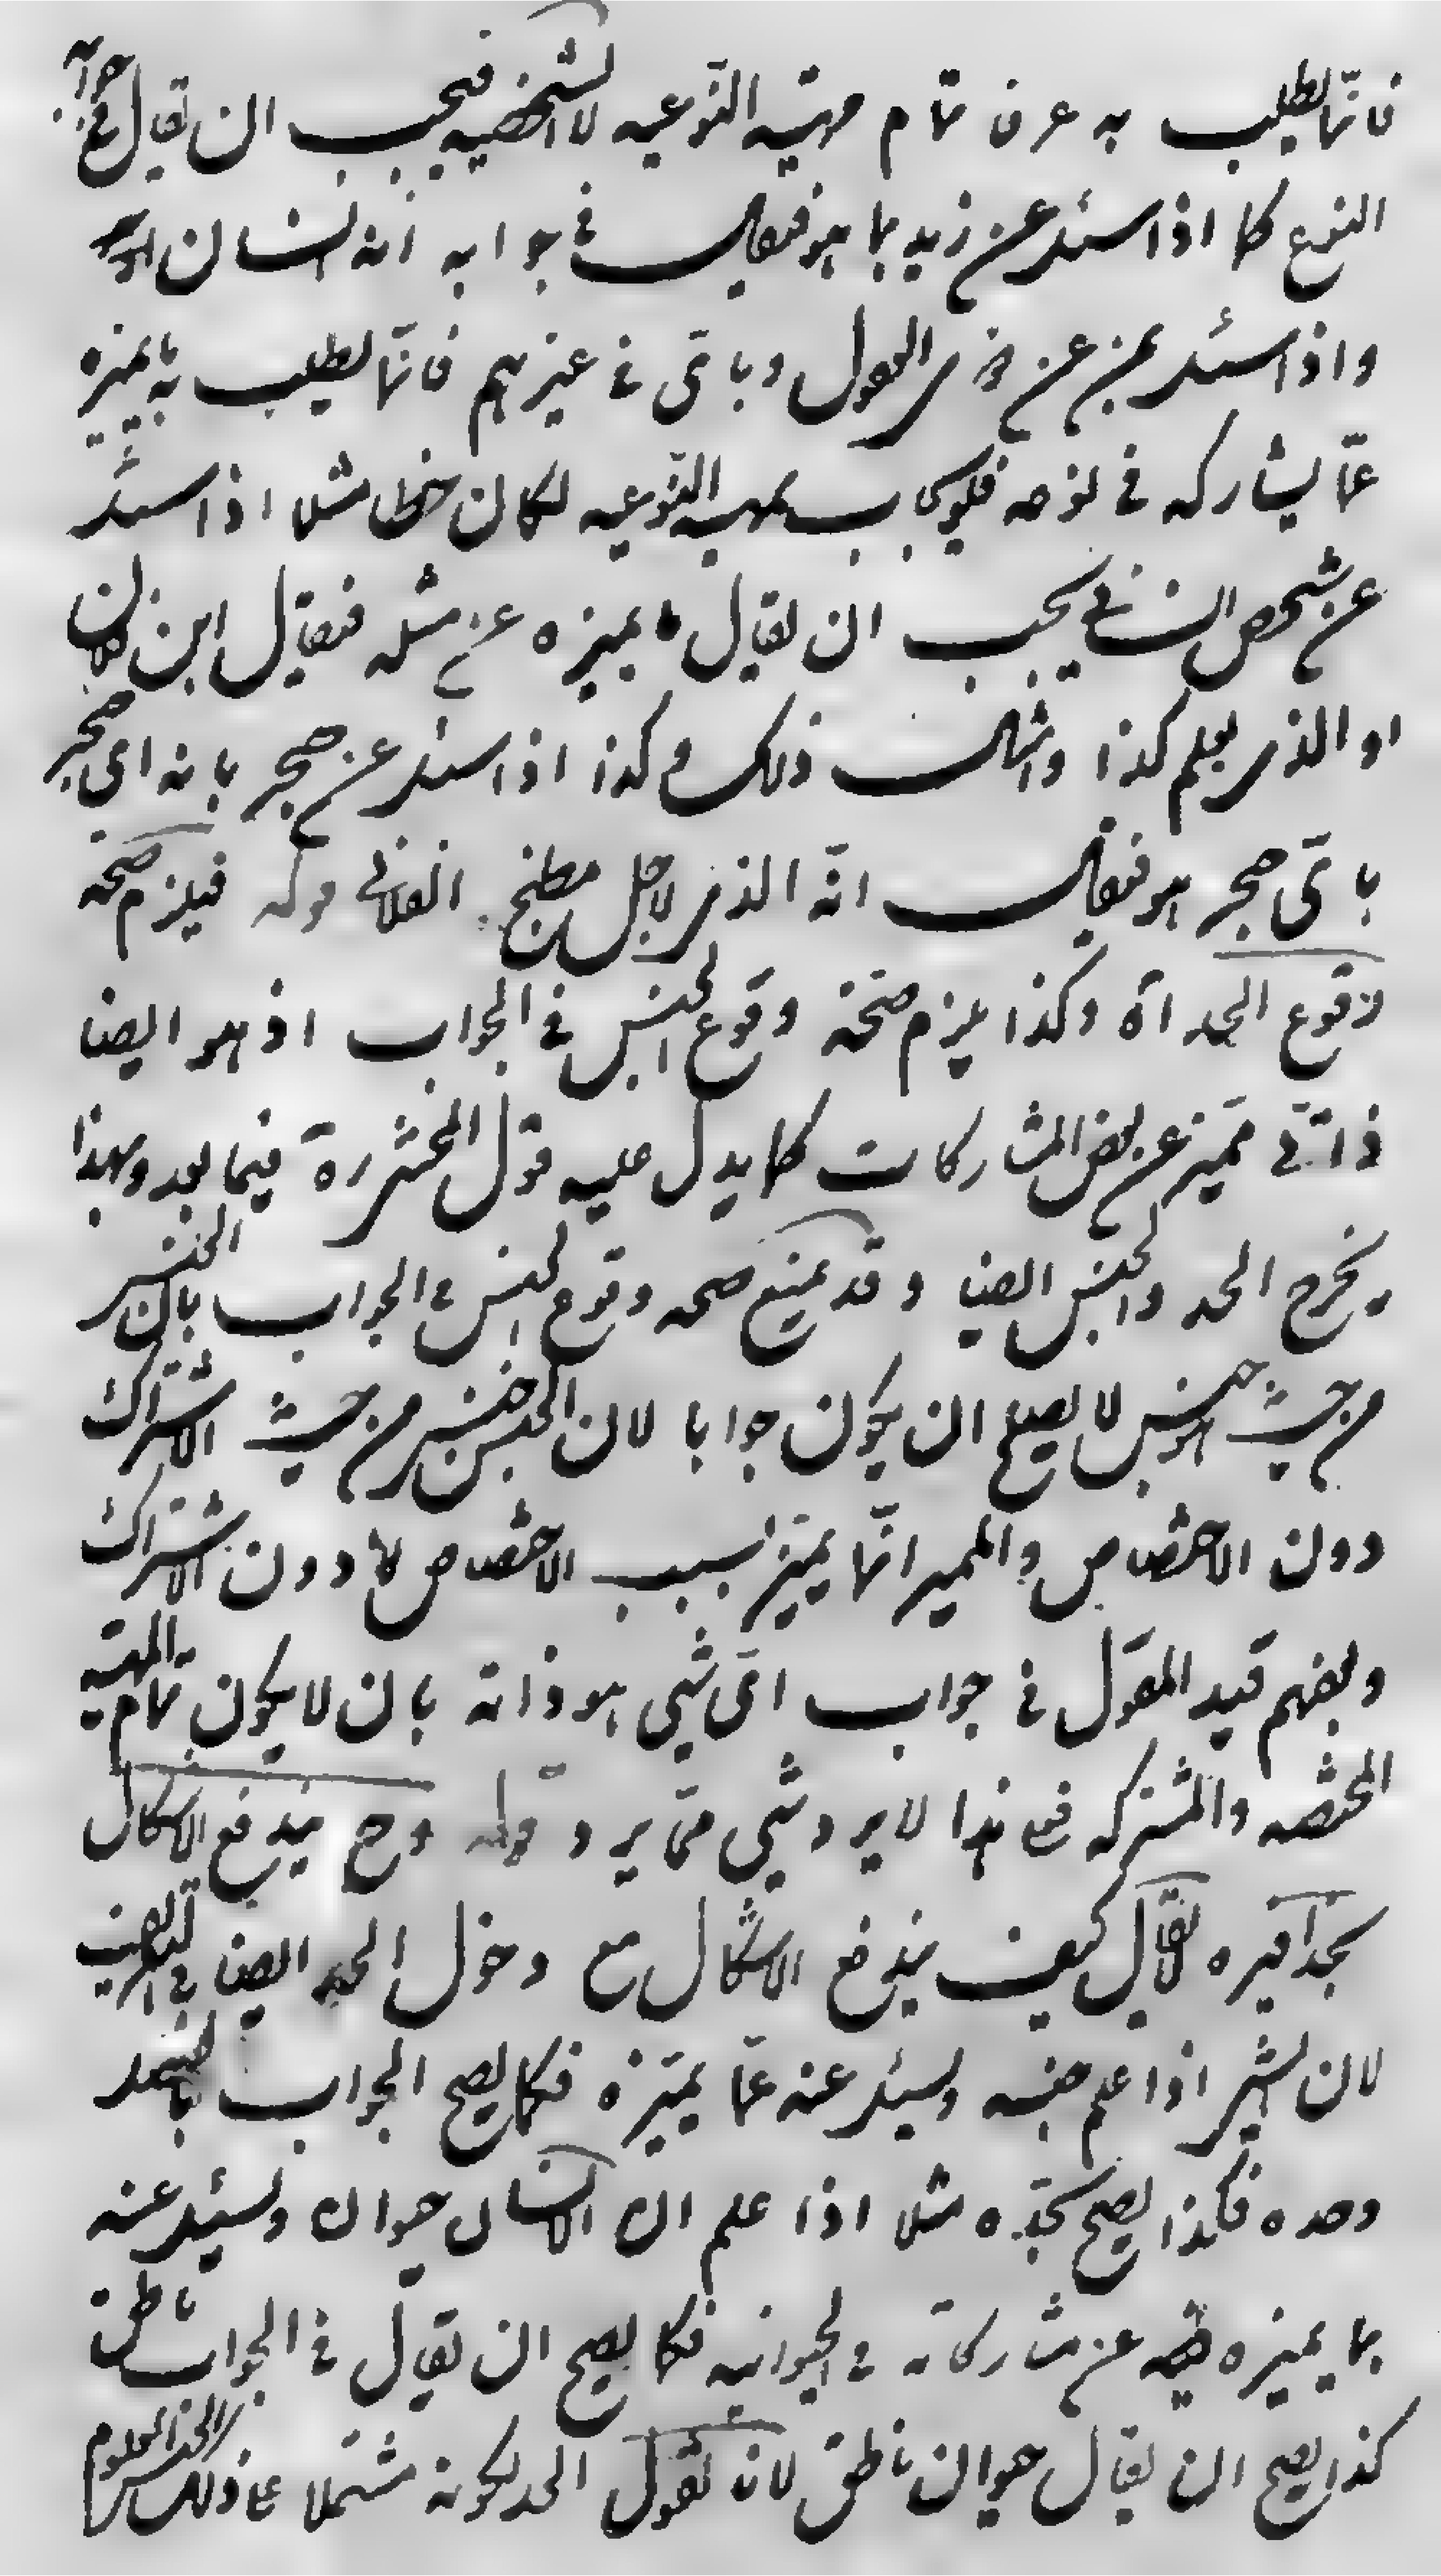 فانّما يطلب به عرفا تمام مهيّته النّوعيه لا الشخصيه فيجب ان يقال فى جوابه
النوع كما اذا سئل عن زيد بما هو فيقال فى جوابه انه انسان
واذا سئل بمن عن ذوى العقول وباىّ فى غيرهم فانّما يطلب به ما يميزه
عمّا يشاركه فى نوعه فلو يجاب بمهيته النّوعيه لكان خطا مثلا اذا سئل
عن شخص انسانى يجب ان يقال ما يميزه عن مثله فيقال ابن فلان
او الذى يعلم كذا وامثال ذلك وكذا اذا سئل عن حجر بانه اى حجر
باىّ حجر هو فيقال انّه الذى لاجل مطبخ الفلانى قوله فيلزم صحة
وقوع الحد اه وكذا يلزم صحّة وقوع الجنس فى الجواب اذ هو ايضا
ذاتىّ مميّز عن بعض المشاركات كما يدل عليه قول المحشى ره فيما بعد وبهذا
يخرج الحد والجنس ايضا وقد يمنع صحه وقوع الجنس فى الجواب بان الجنس
من حيث هو جنس لا يصلح ان يكون جوابا لان الجنس جنس من حيث الاشتراك
دون الاختصاص والمميز انّما يميّز بسبب الاختصاص لا دون الاشتراك
ويفهم قيد المقول فى جواب اىّ شىء هو ذاته بان لا يكون تمام المهيّه
المختصه والمشتركه فعلى هذا لا يرد شىء ممّا يرد قوله وح يندفع الاشكال
بحذافيره لا يقال كيف يندفع الاشكال مع دخول الحد ايضا فى التعريف
لان الشىء اذا علم جنسه وسئل عنه عمّا يميّزه فكما يصح الجواب بالفصل
وحده فكذا يصح بحدّه مثلا اذا علم ان الانسان حيوان وسئل عنه
بما يميزه عن مشاركاته فى الحيوانيه فكما يصح ان يقال فى الجواب ناطق
كذا يصح ان يقال حيوان ناطق لانا نقول الحد لكونه مشتملا على ذلك الجنس المعلوم